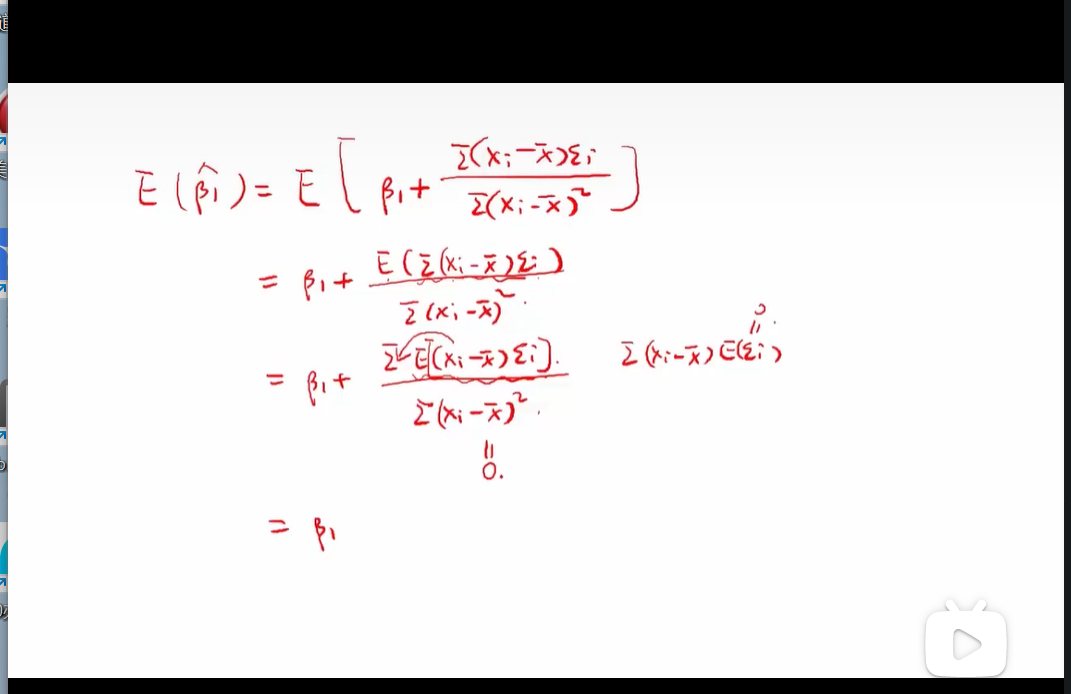 E(β̂₁) = E[β₁ + Σ(xᵢ-x̄)εᵢ / Σ(xᵢ-x̄)²]
= β₁ + E(Σ(xᵢ-x̄)εᵢ) / Σ(xᵢ-x̄)².
= β₁ + ΣE[(xᵢ-x̄)εᵢ]. / Σ(xᵢ-x̄)². Σ(xᵢ-x̄)E(εᵢ)
=
0.
= β₁